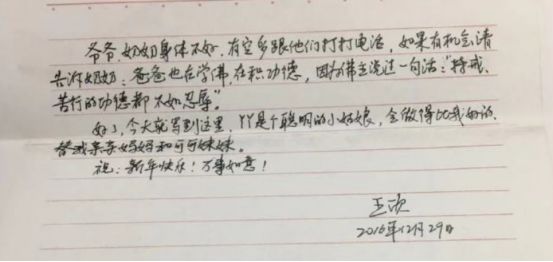 爷爷、奶奶身体不好,有空多跟他们打打电话,如果有机会请
告诉奶奶:爸爸也在学佛,在积功德,因为佛主说过一句话:“持戒、
苦行的功德都不如忍辱”。
好了,今天就写到这里,YY是个聪明的小姑娘,会做得比我好的,
替我亲亲妈妈和可可妹妹。
祝:新年快乐!万事如意!
王欣
2016年12月29日